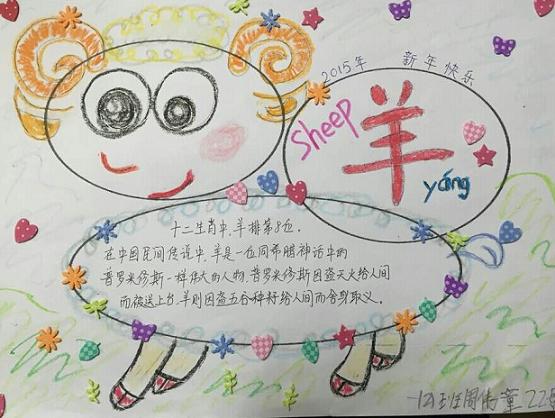 2015年 新年快乐
Sheep
羊
yáng
十二生肖中,羊排第8位。
在中国民间传说中,羊是一位同希腊神话中的
普罗米修斯一样伟大的人物,普罗米修斯因盗天火给人间
而被送上台,羊则因盗五谷种籽给人间而舍身取义。
班周伟童